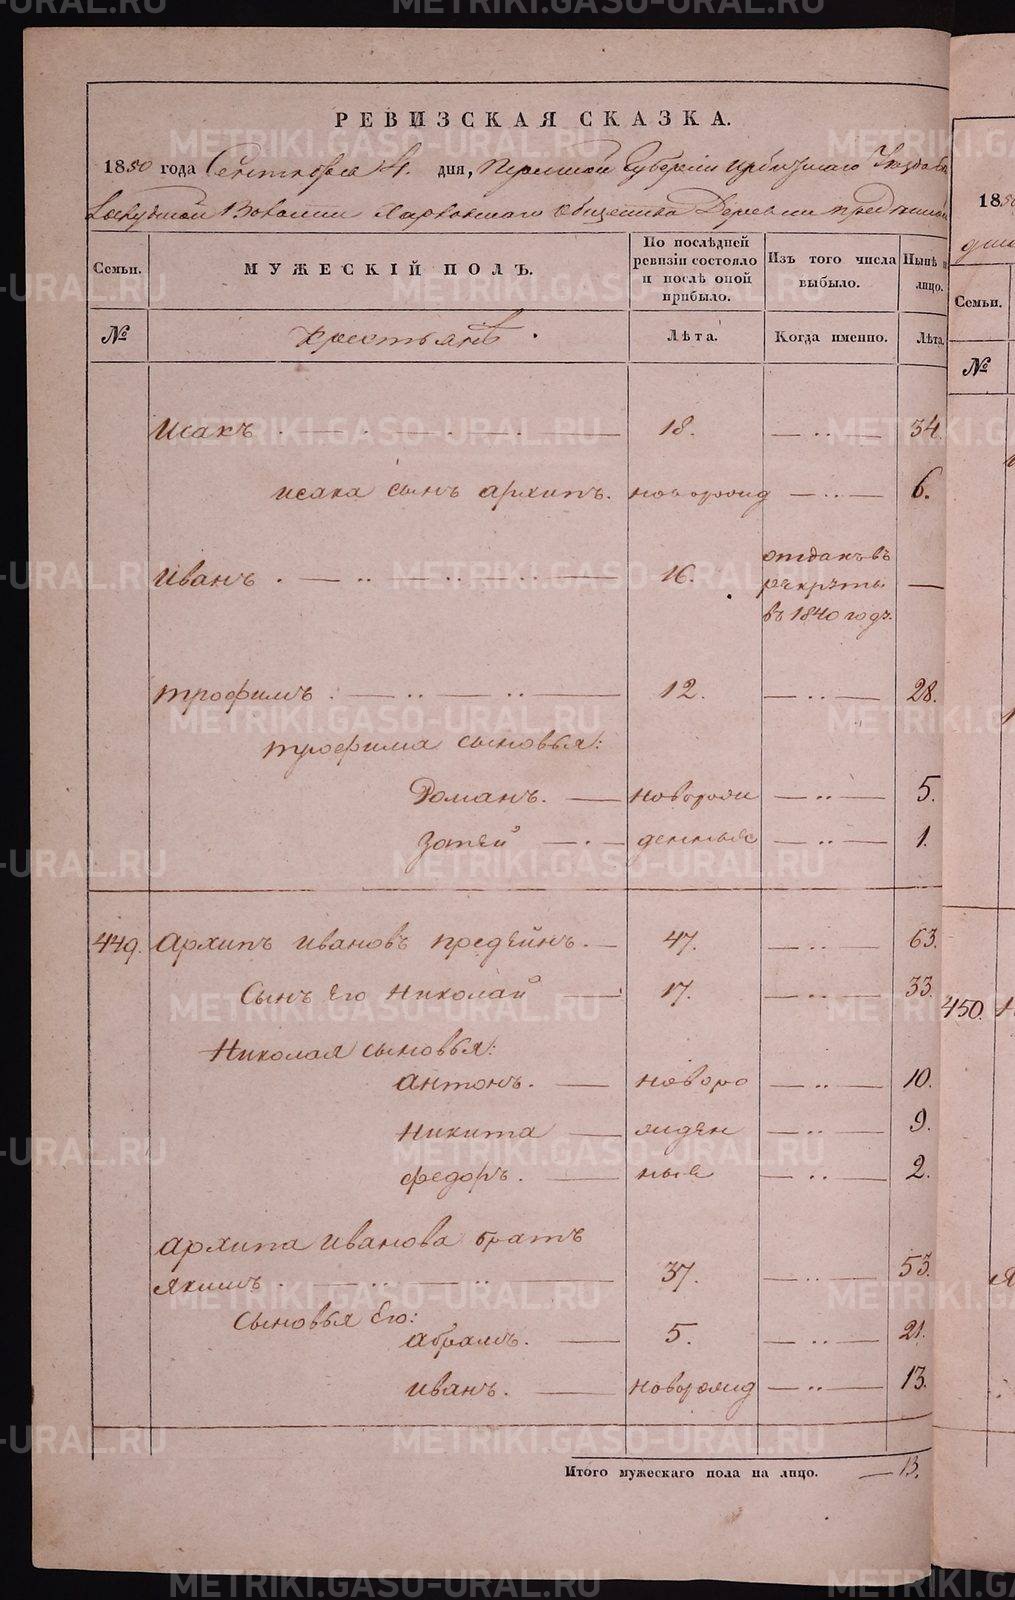 METRIKI.GASO-URAL.RU
РЕВИЗСКАЯ СКАЗКА.
1850 года Сентября 4. дня, Пермской Губернии Ирбитскаго Уезда
Волости Харловскаго общества Деревни
Семьи.
МУЖЕСКІЙ ПОЛЪ.
По послѣдней ревизіи состояло и послѣ оной прибыло.
Изъ того числа выбыло.
Нынѣ
лицо.
№
Крестьянъ.
Лѣта.
Когда именно.
Лѣта.
Исакъ 18. 34.
исака сынъ архипъ. новорожд 6.
Иванъ. 16. отданъ въ рекруты въ 1840 годъ.
трофимъ. 12. 28.
трофима сыновья:
Романъ. новорож 5.
денные 1.
449. Архипъ ивановъ предеинъ. 47. 63.
Сынъ Его Николай 17. 33.
Николая сыновья:
антонъ. новоро 10.
Никита жден 9.
федоръ. ные 2.
Архипа иванова братъ
якимъ 37. 53.
Сыновья Его:
абрамъ. 5. 21.
иванъ. новорожд 13.
Итого мужескаго пола на лицо. 13.
185
Семьи.
№
450.